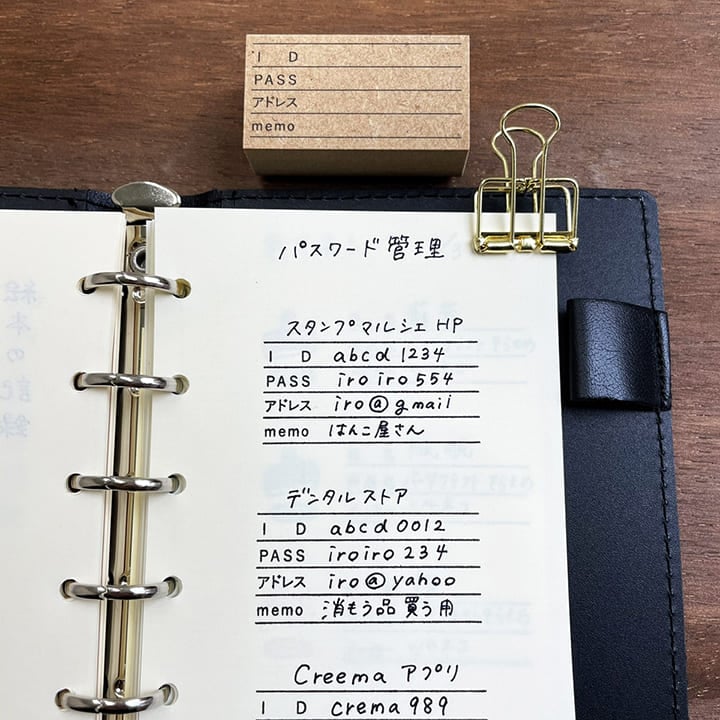 I D
PASS
アドレス
memo
パスワード管理
スタンプマルシェ HP
I D abcd1234
PASS iroiro554
アドレス iro@gmail
memo はんこ屋さん
デンタルストア
I D abcd0012
PASS iroiro234
アドレス iro@yahoo
memo 消もう品買う用
Creema アプリ
I D crema989
絵本の記録